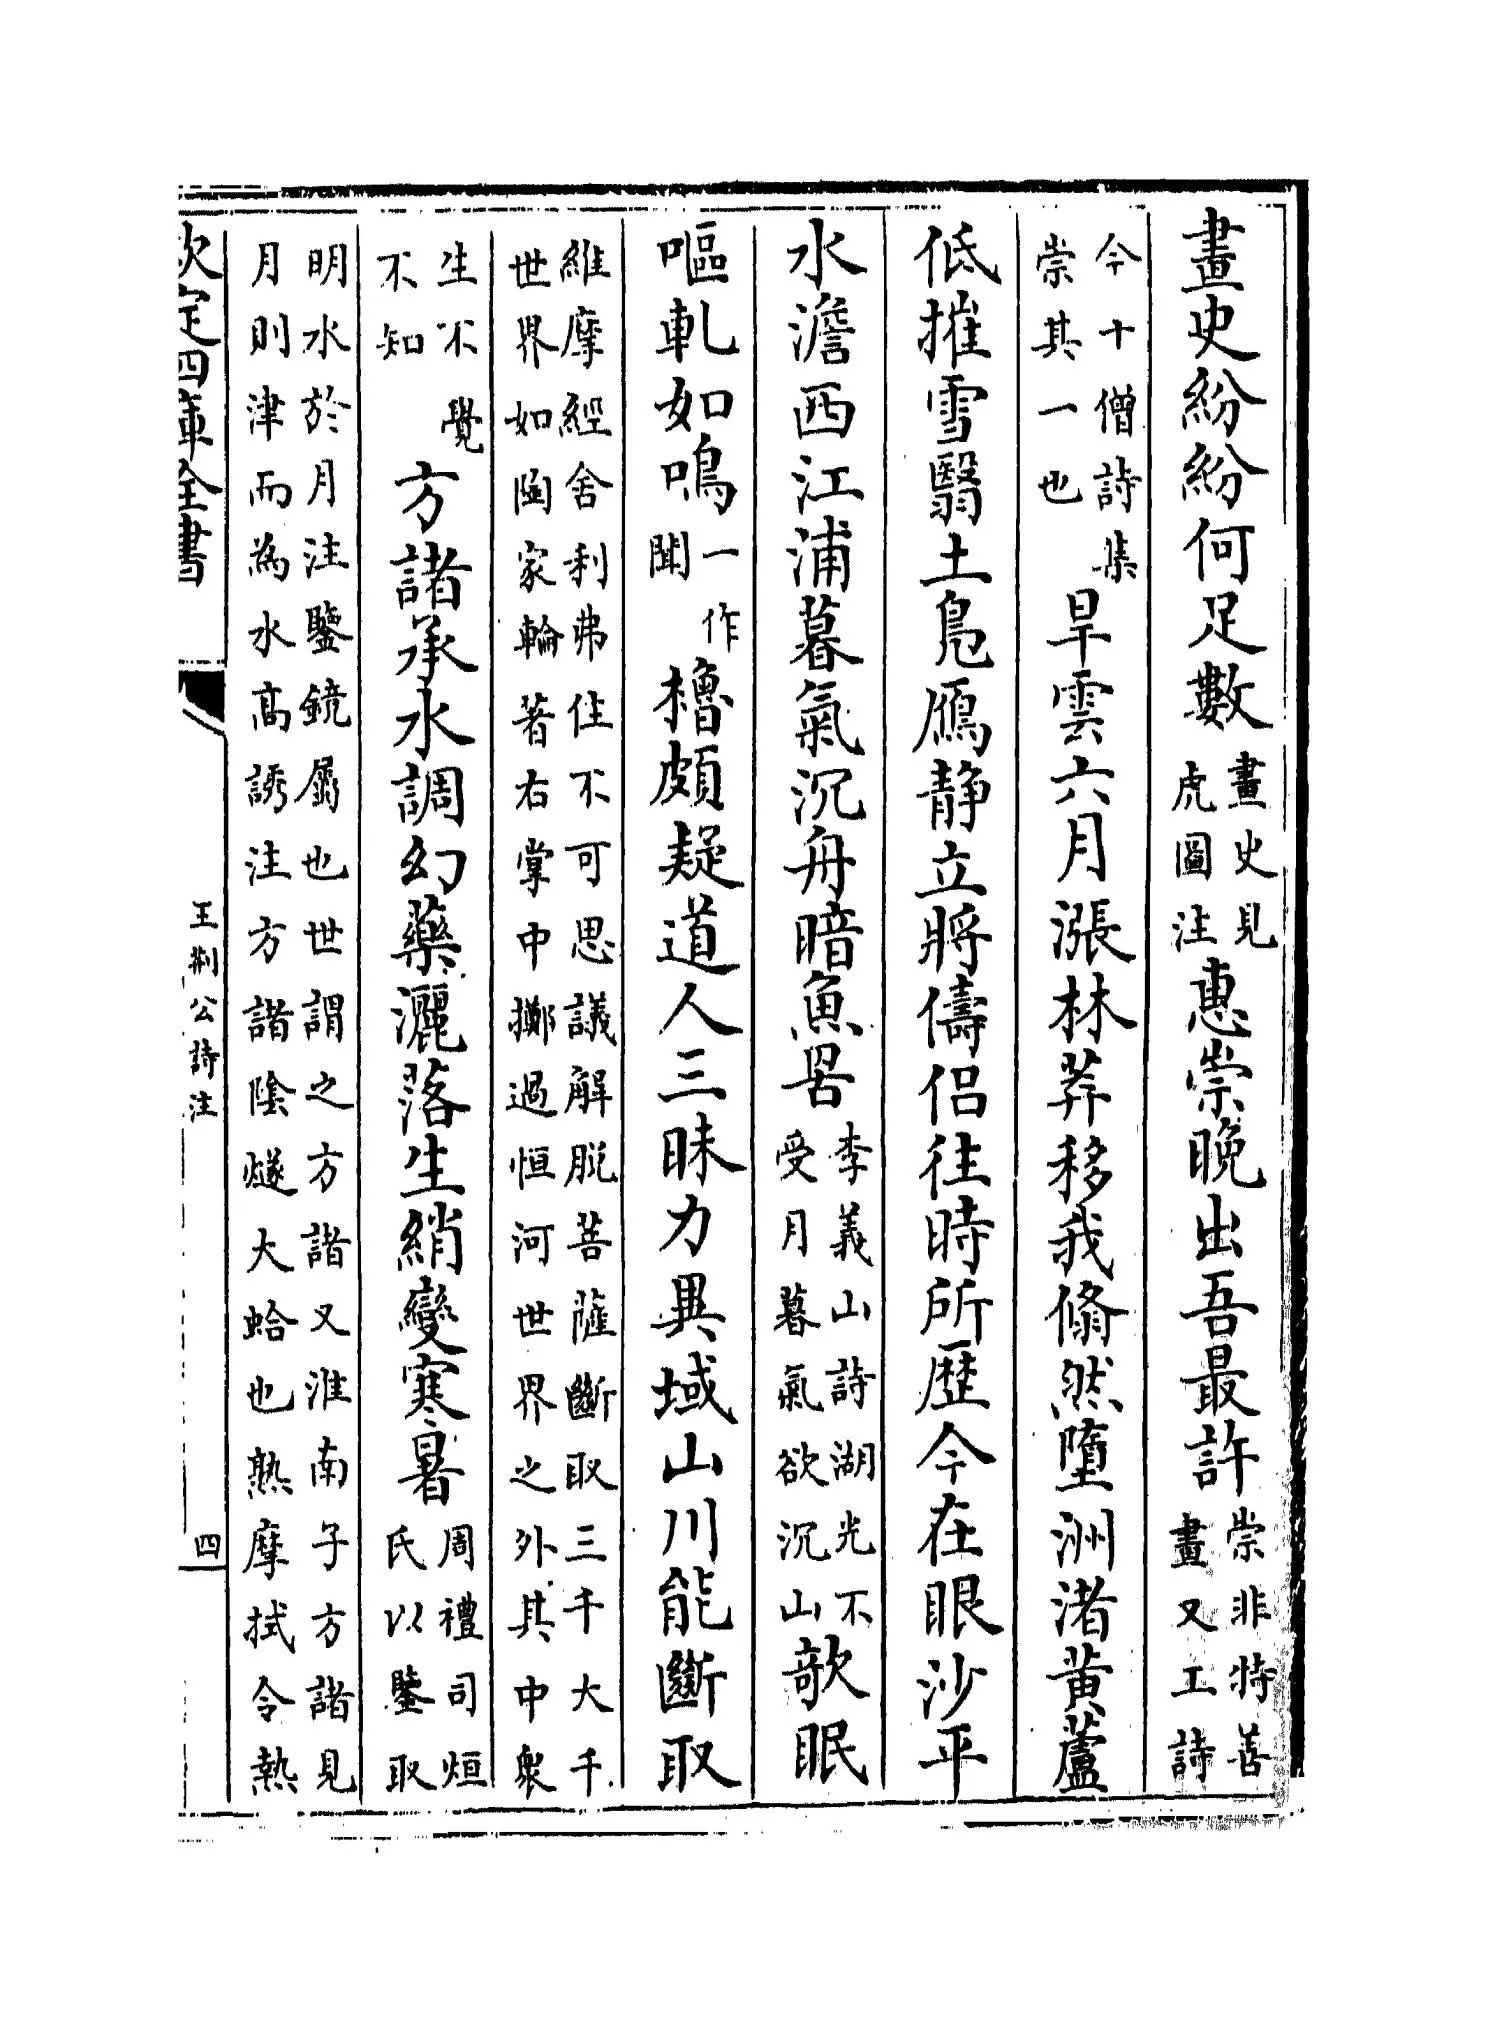 畫史紛紛何足數畫史見虎圖注惠崇晚出吾最許崇非特善畫又工詩
今十僧詩集崇其一也旱雲六月漲林莽移我翛然墮洲渚黄蘆
低摧雪翳土鳬鴈静立將儔侣往時所歴今在眼沙平
水澹西江浦暮氣沉舟暗魚罟李義山詩湖光不受月暮氣欲沉山欹眠
嘔軋如鳴一作聞櫓頗疑道人三昧力異域山川能斷取
維摩經舍利弗住不可思議解脱菩薩斷取三千大千世界如陶家輪著右掌中擲過恒河世界之外其中衆
生不覺不知方諸承水調幻藥灑落生綃變寒暑周禮司烜氏以鑒取
明水於月注鑒鏡屬也世謂之方諸又淮南子方諸見月則津而為水高誘注方諸陰燧大蛤也熟摩拭令熱
欽定四庫全書
王荆公詩注
四